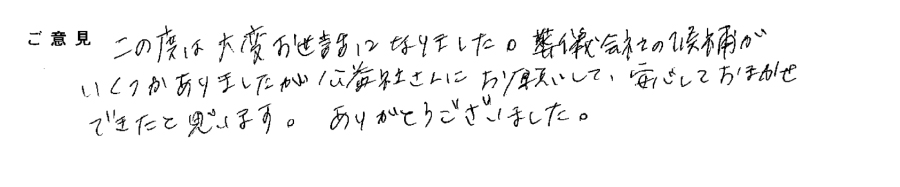 ご意見 この度は大変お世話になりました。葬儀会社の候補が
いくつかありましたが公益社さんにお願いして、安心しておまかせ
できたと思います。 ありがとうございました。